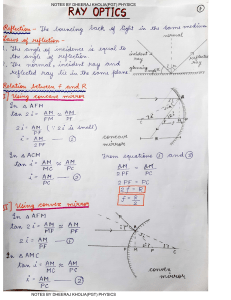 NOTES BY DHEERAJ KHOLIA(PGT) PHYSICS
RAY OPTICS
Reflection - The bouncing back of light in the same medium
Laws of reflection -
1. The angle of incidence is equal to
the angle of reflection.
2. The normal, incident ray and
reflected ray lie in the same plane
normal
incident ray
reflected ray
Relation between f and R
I] Using concave mirror
In △AFM
tan 2i = AM/FM ≈ AM/PF
2i = AM/PF (∵ 2i is small)
i = AM/2PF — ①
In △ACM
tan i = AM/MC ≈ AM/PC
i = AM/PC — ②
concave
mirror
From equations ① and ②
AM/2PF = AM/PC
2PF = PC
2f = R
f = R/2
II] Using convex mirror
In △AFM
tan 2i = AM/MF ≈ AM/PF
2i = AM/PF — ①
In △AMC
tan i = AM/MC ≈ AM/PC
i = AM/PC — ②
convex
mirror
NOTES BY DHEERAJ KHOLIA(PGT) PHYSICS